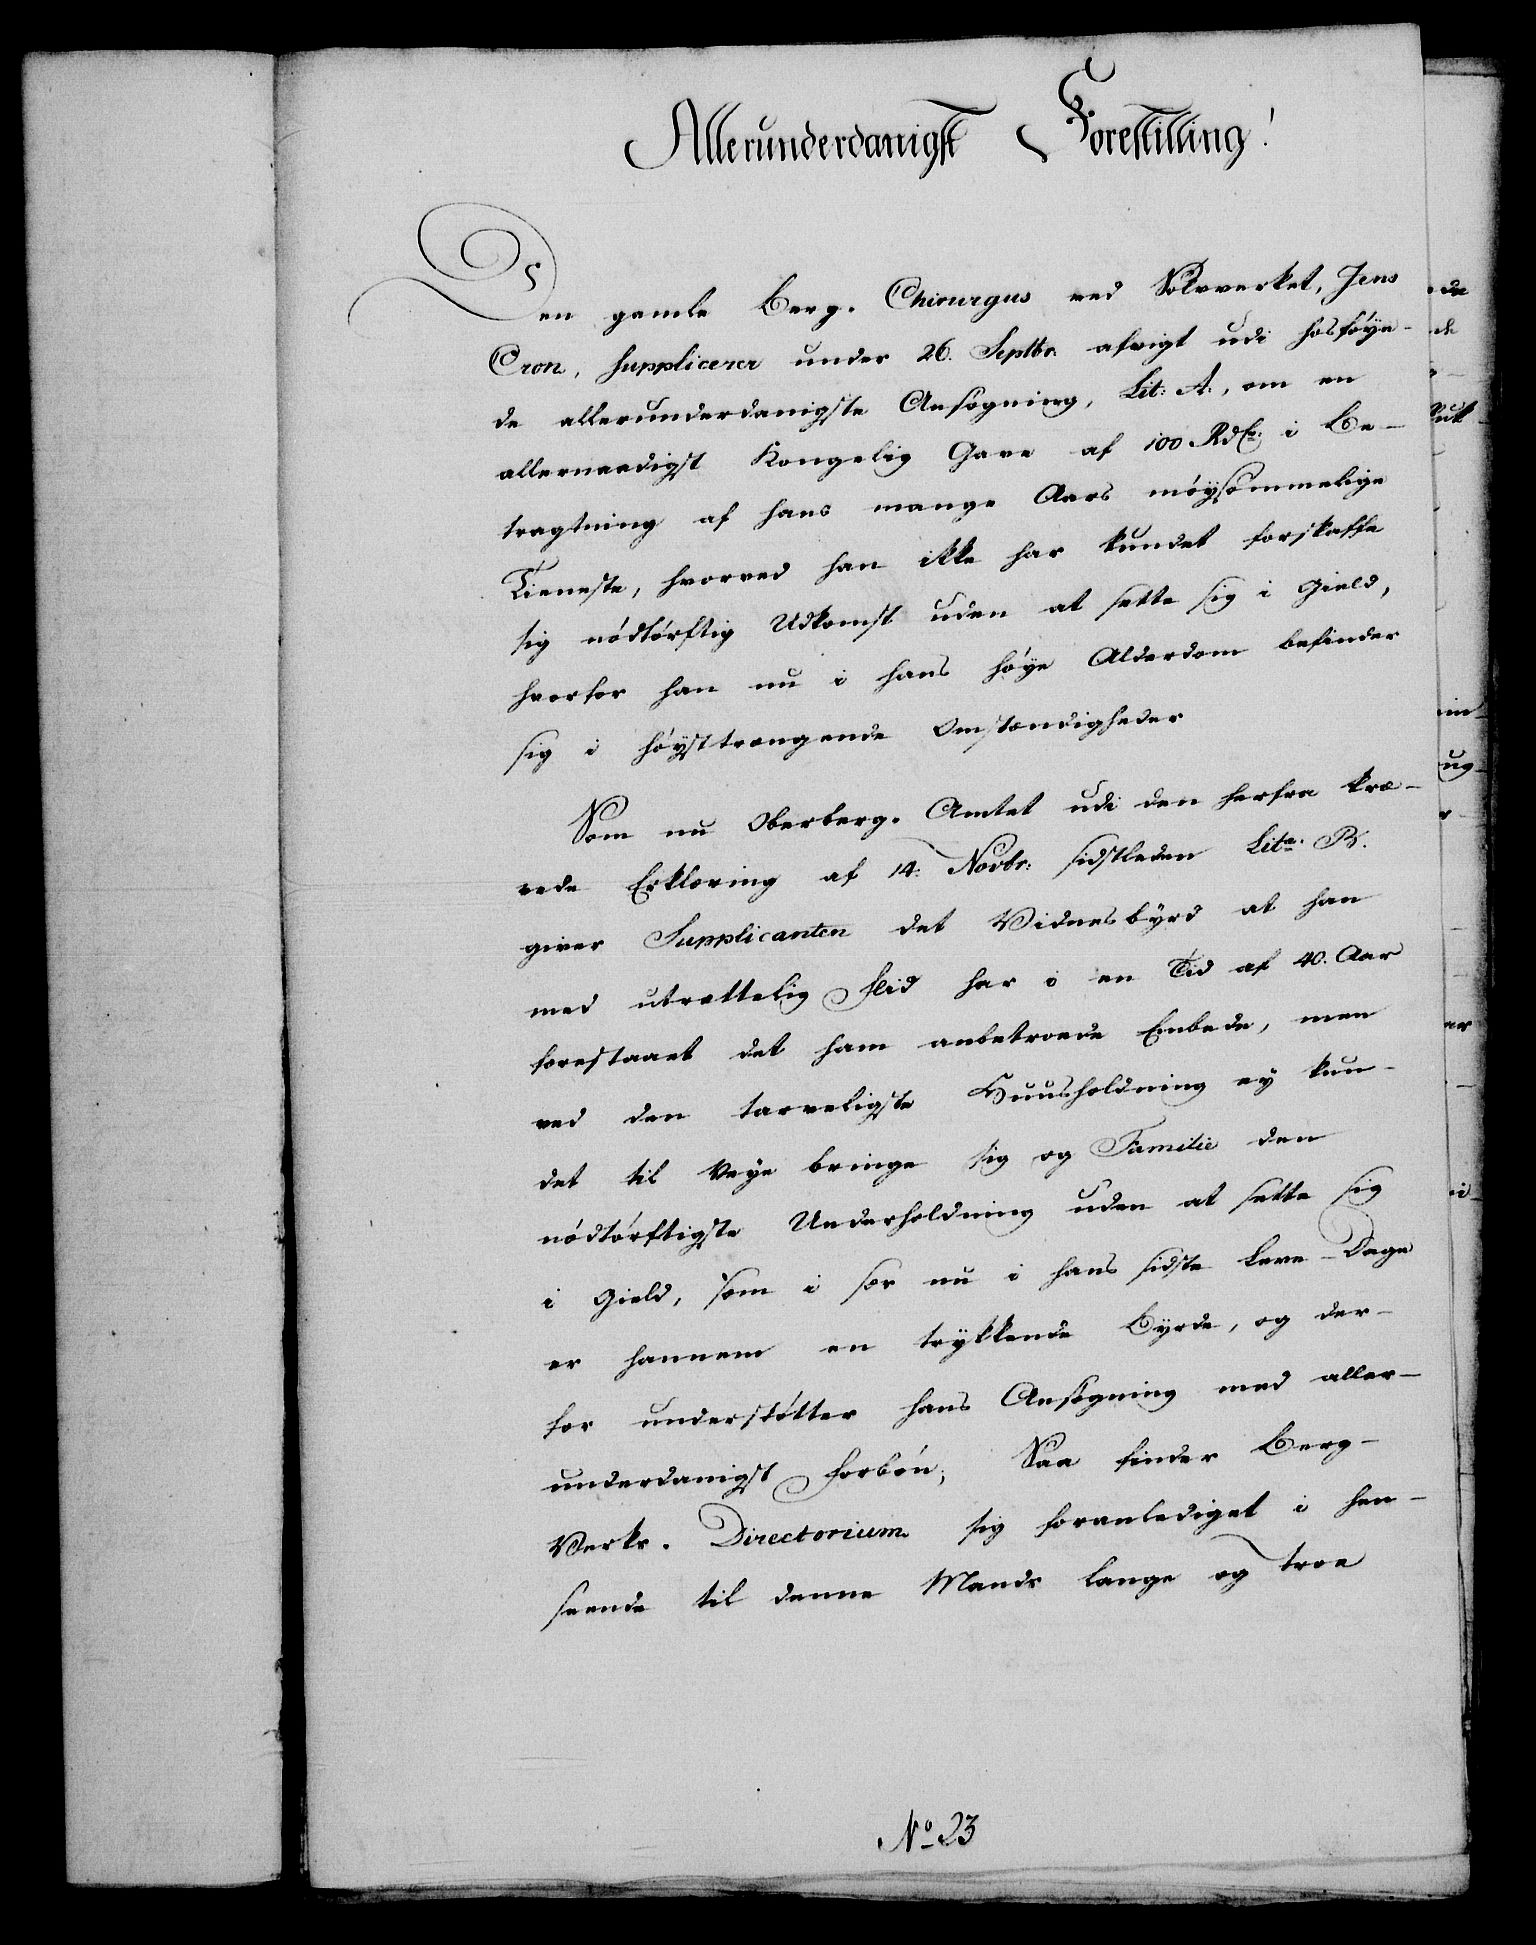 Allerunderdanigst Forestilling!
Den gamle Berg-Chirurgus ved Sölvverket, Jens
Cron, supplicerer under 26. Septbr. afvigt udi hosföyen-
de allerunderdanigste Ansögning, Lit: A:, om en
allernaadigst Kongelig Gave af 100 Rdlr. i Be-
tragtning af hans mange Aars möysommelige
Tieneste, hvorved han ikke har kundet forskaffe
sig nödtörftig Udkomst uden at sette sig i Gield,
hvorfor han nu i hans höye Alderdom befinder
sig i höysttrængende Omstændigheder
Som nu Oberberg-Amtet udi den herfra kræ-
vede Erklæring af 14. Novbr: sidstleden Litr. B.
giver Supplicanten det Vidnesbyrd at han
med utrættelig Flid har i en Tid af 40. Aar
forestaaet det ham anbetroede Embede, men
ved den tarveligste Huusholdning ey kun-
det til Veye bringe sig og Familie den
nödtörftigste Underholdning uden at sette sig
i Gield, som i sær nu i hans sidste Leve-Dage
er hannem en trykkende Byrde, og der-
for understötter hans Ansögning med aller-
underdanigst Forbön; Saa finder Berg-
Verks-Directorium sig foranlediget i Hen-
seende til denne Mands lange og troe
No. 23